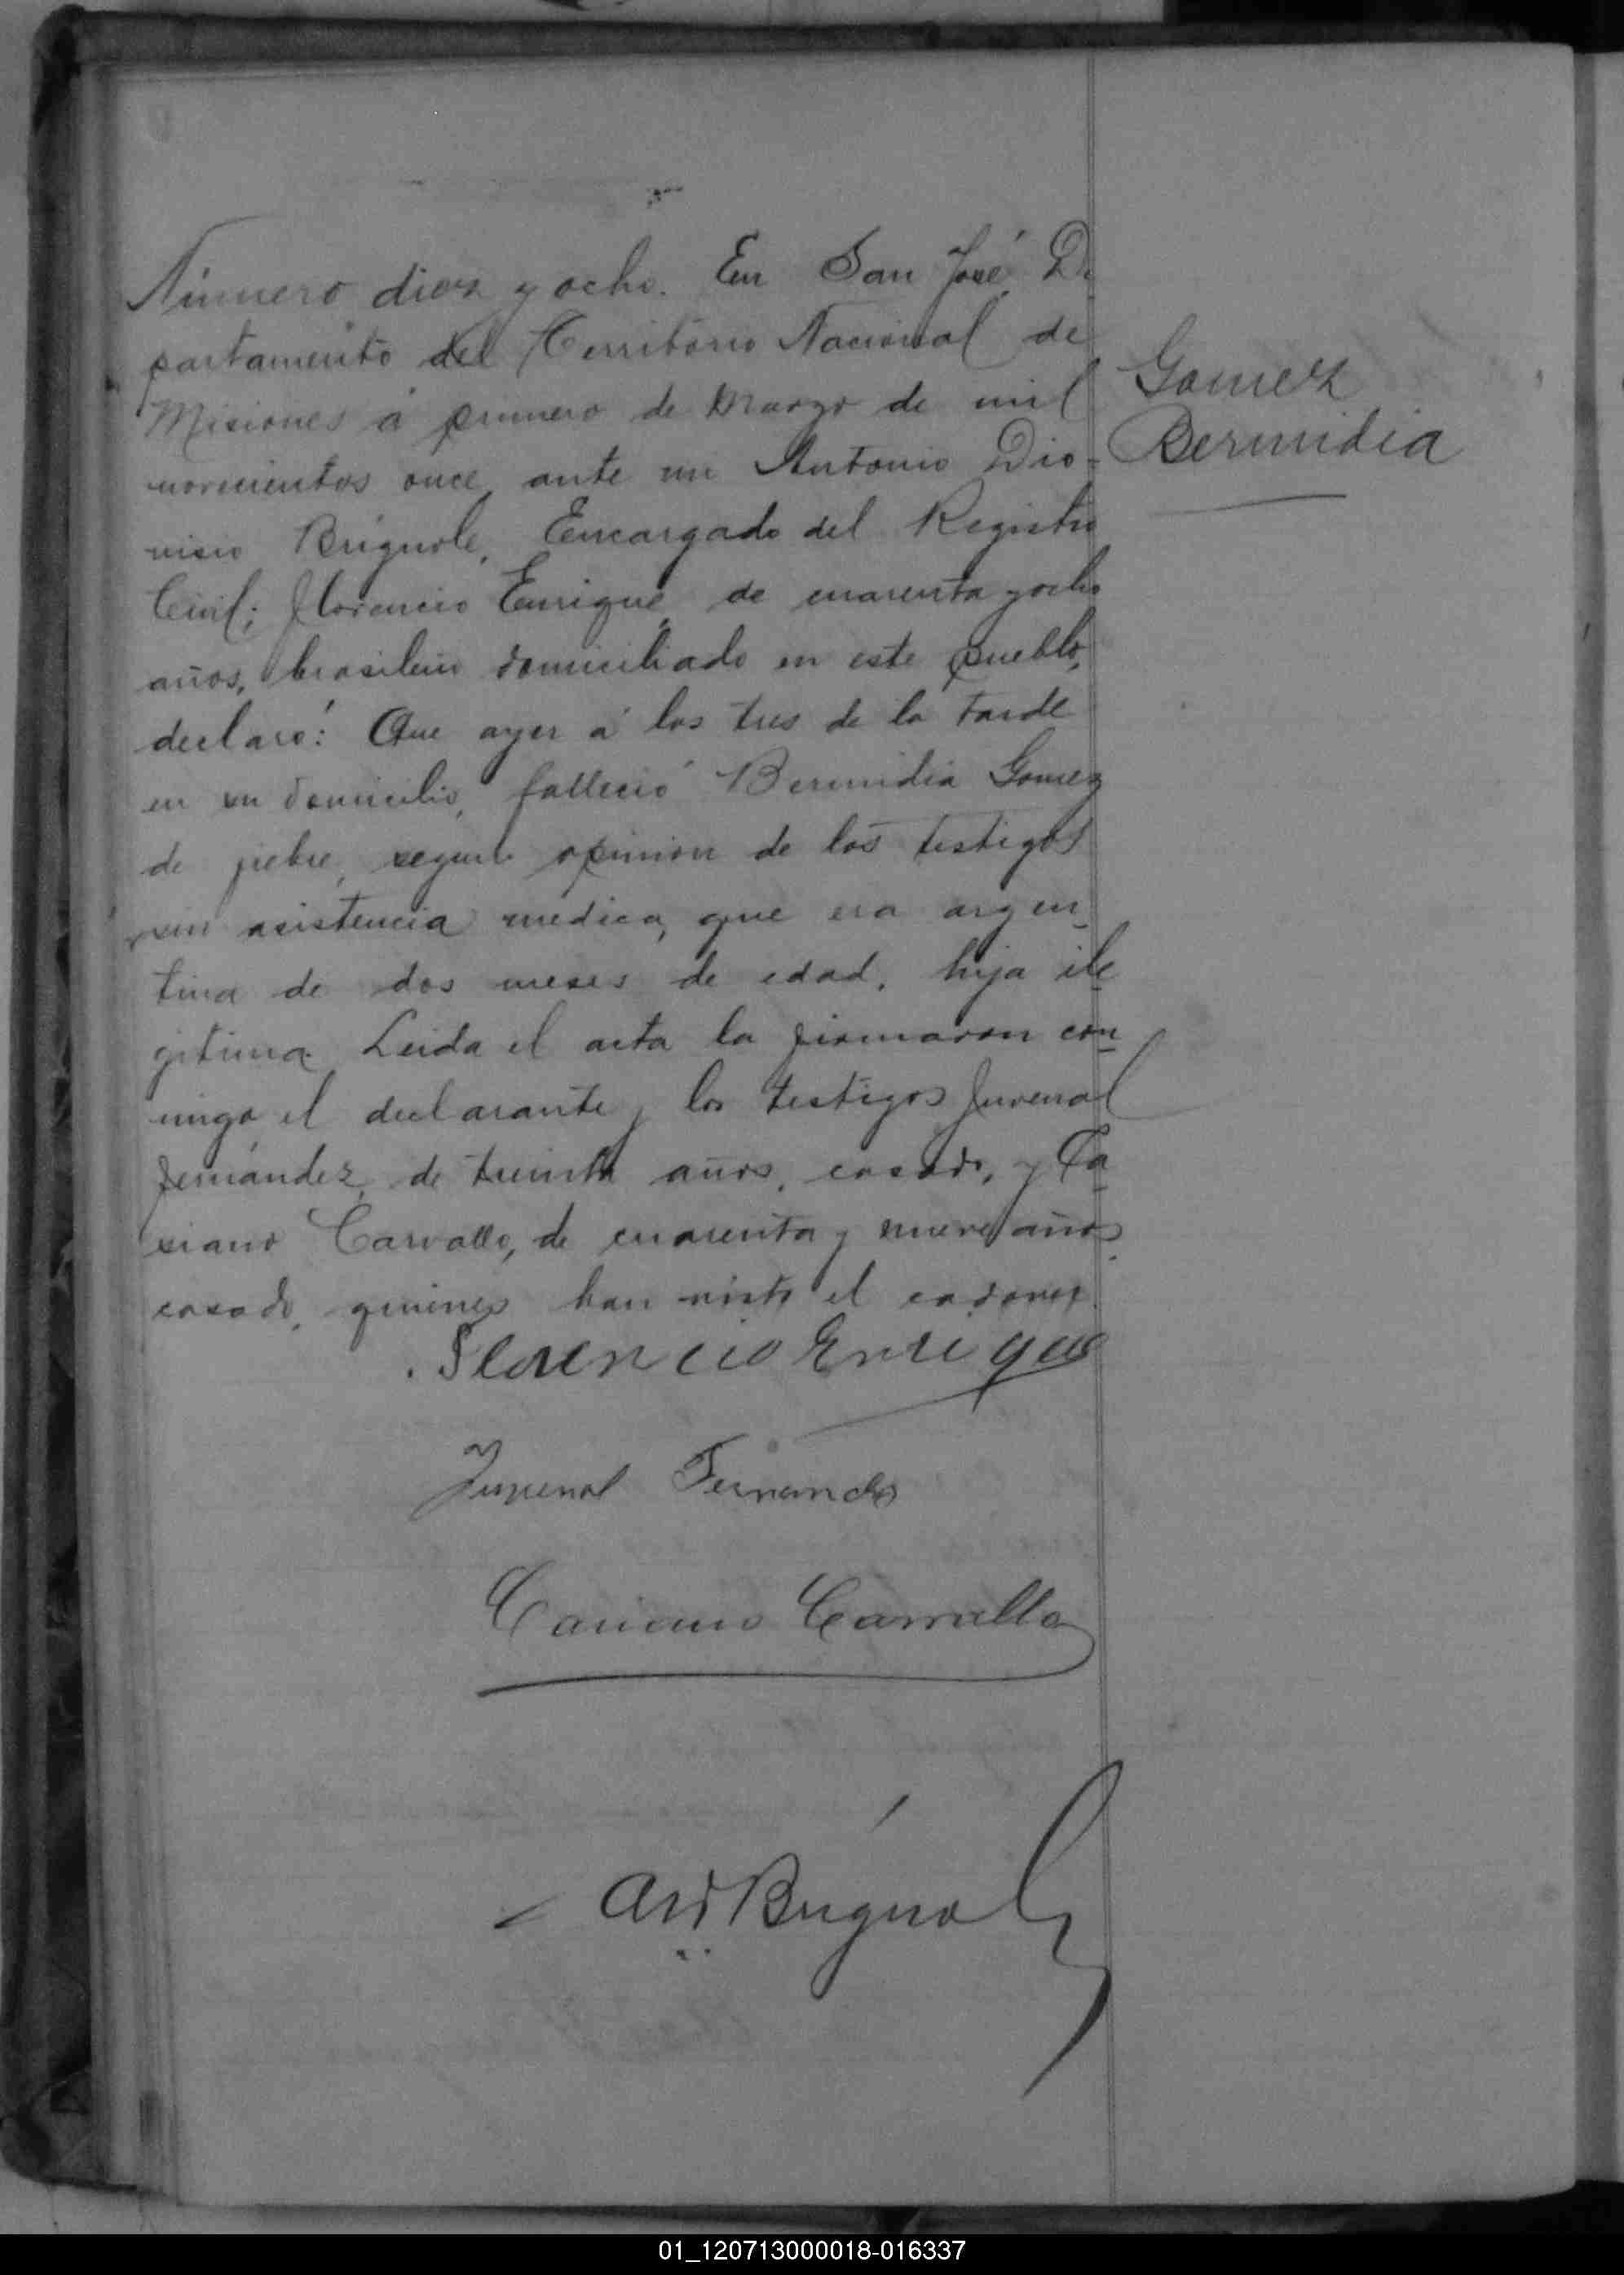 Número diez y ocho. En San José, De
partamento del Territorio Nacional de
Misiones á primero de Marzo de mil
novecientos once, ante mi Antonio Dio-
nisio Brignole, Encargado del Registro
Civil; Florencio Enrique, de cuarenta y ocho
años, brasilero domiciliado en este pueblo,
declaró: Que ayer á las tres de la tarde
en su domicilio, falleció Bermidia Gomez
de fiebre, segun opinion de los testigos
sin asistencia medica, que era argen_
tina de dos meses de edad, hija ile
gitima. Leida el acta la firmaron con
migo el declarante y los testigos Juvenal
Fernández, de treinta años, casado, y Ca
siano Carvallo, de cuarenta y nueve años,
casado, quienes han visto el cadaver.
Gomez
Bermidia
Florencio Enrique
Juvenal Fernandes
Casiano Carvallo
Brignole
01_120713000018-016337